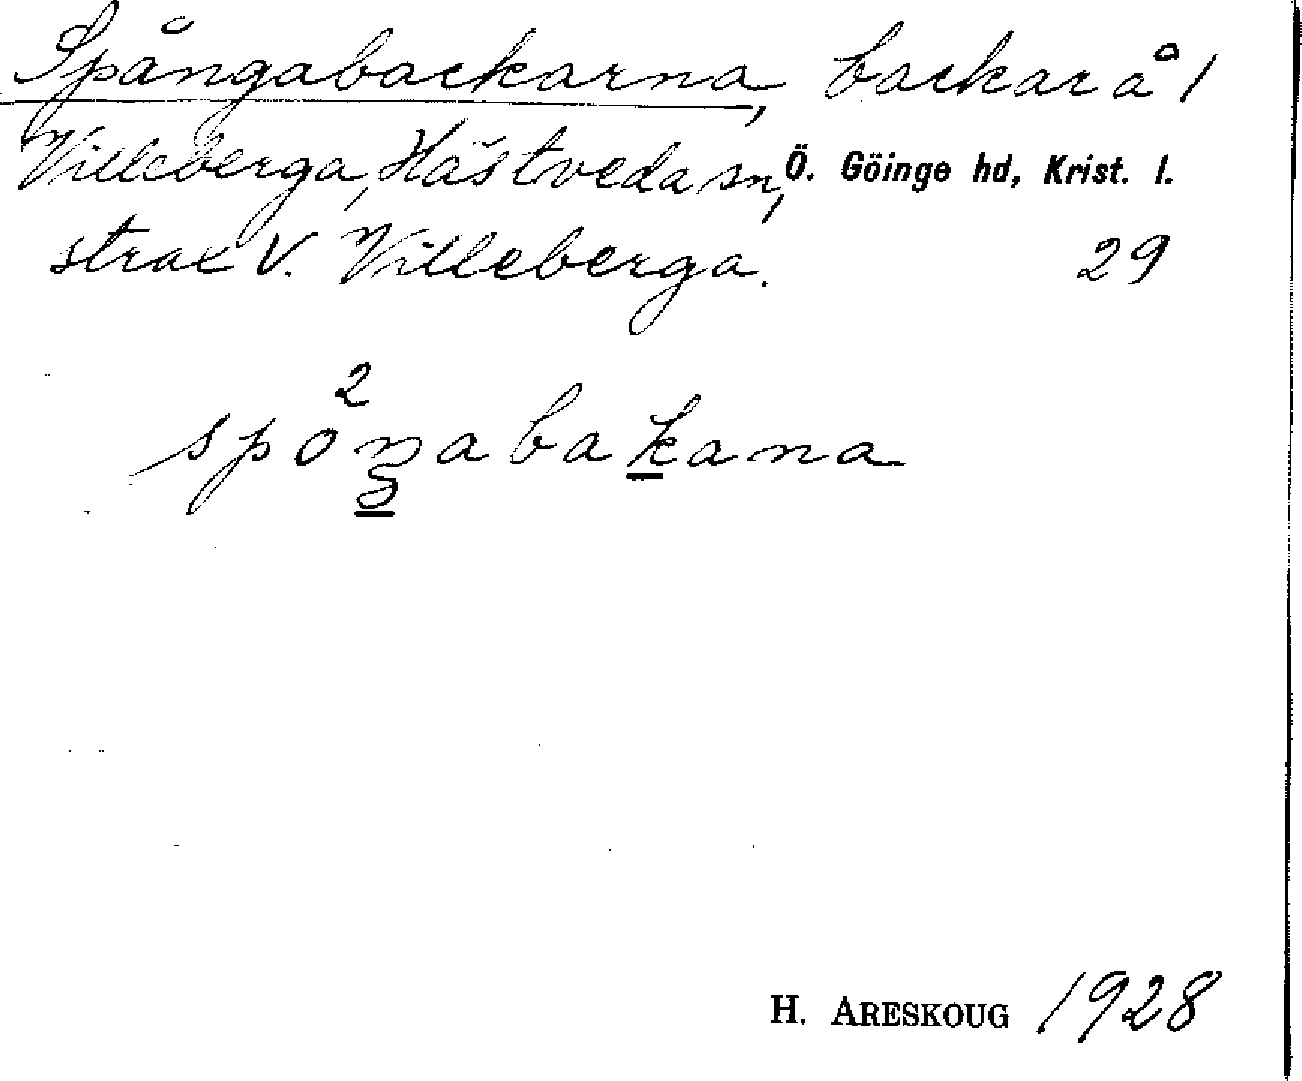 Spångabackarna, backar å 1
Villeberga, Hästveda sn, Ö. Göinge hd, Krist. l.
strax V. Villeberga. 29
2
spoŋabakana
H. ARESKOUG 1928